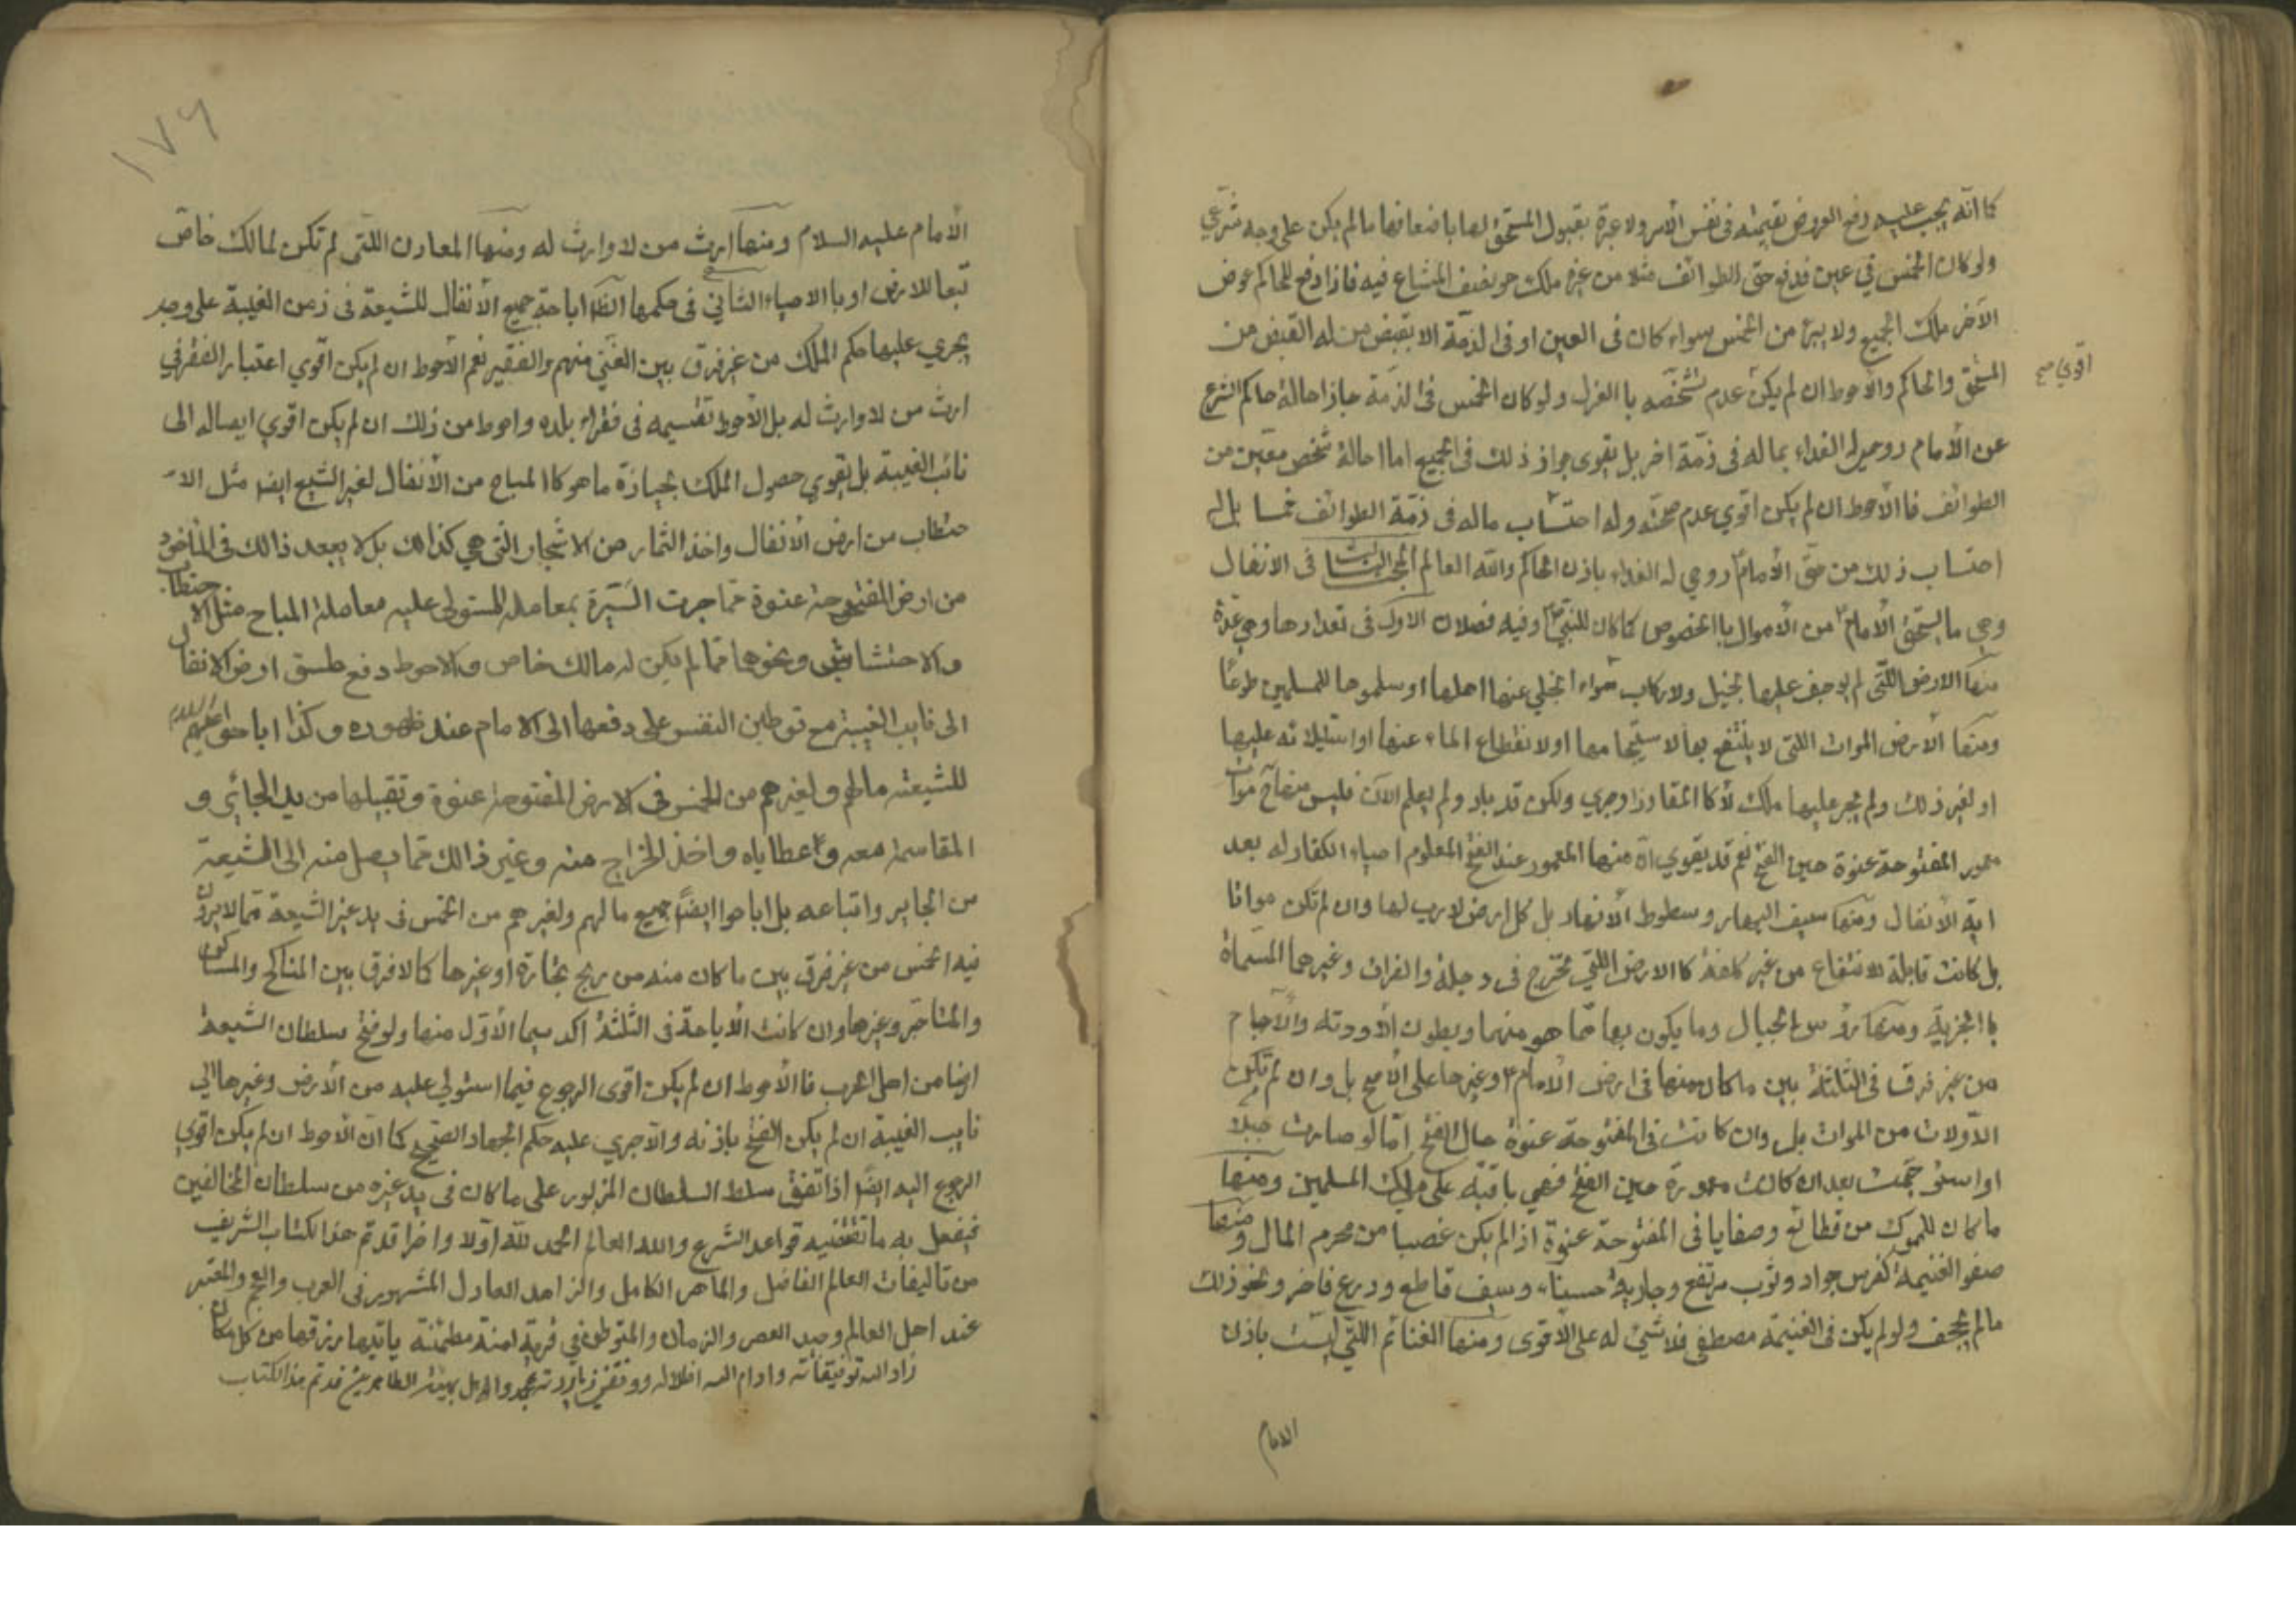 كما انه يجب عليه دفع العروض بقيمته فى نفس الأمر ولا عبرة بقبول المستحق لها باضعافها ما لم يكن على وجه شرعي
ولو كان الخمس في عين فدفع حق الطوائف مثلا من غيره ملك هو نصف المشاع فيه فاذا دفع للحاكم عوض
الآخر ملك الجميع ولا يبرء من الخمس سواء كان فى العين او فى الذمّة الا بقبض من له القبض من
المستحق والحاكم والأحوط ان لم يكن عدم تشخّصه با العزل ولو كان الخمس فى الذمّة جاز احالة حاكم الشرع
اقوى صح
عن الأمام روحي له الفداء بماله فى ذمّة اخر بل يقوى جواز ذلك فى الجميع اما احالة شخص معيّن من
الطوائف فا الأحوط ان لم يكن اقوي عدم صحّته وله احتساب ماله فى ذمّة الطوائف خمسا بل له
احتساب ذلك من حقّ الأمام روحي له الفداء باذن الحاكم والله العالم المبحث الثالث فى الانفال
وهي ما يستحق الأمام من الأموال با الخصوص كما كان للنبيّ وفيه فصلان الاول فى تعدادها وهي عدّة
منها الارض اللّتى لم يوجف عليها بخيل ولا ركاب سواء انجلي عنها اهلها او سلموها للمسلمين طوعًا
ومنها الأرض الموات اللتى لا ينتفع بها لاستيجامها او لانقطاع الماء عنها او استيلائه عليها
او لغير ذلك ولم يجر عليها ملك لأ كا المفاوز او جري ولكن قد باد ولم يعلم الآن فليس منها موات
معمور المفتوحة عنوة حين الفتح نعم قد يقوي انّ منها المعمور عند الفتح المعلوم احياء الكفار له بعد
اية الأنفال ومنها سيف البحار وسطوط الأنهار بل كل ارض لا رب لها وان لم تكن مواتا
بل كانت قابلة للانتفاع من غير كلفة كا الارض اللتي تخرج فى دجلة والفرات وغيرهما المسماة
با الجزيرة ومنها رؤس الجبال وما يكون بها مما هو منهما وبطون الأودية والآجام
من غير فرق فى الثلثة بين ما كان منها فى ارض الأمام وغيرها على الأصح بل وان لم تكن
الأوّلات من الموات بل وان كانت فى المفتوحة عنوة حال الفتح امّا لو صارت جبلا
او استوجمت بعد ان كانت معمورة حين الفتح فهي باقية على ملك المسلمين ومنها
ما كان للملوك من قطائع وصفايا فى المفتوحة عنوة اذا لم يكن غصبا من محرم المال ومنها
صفو الغنيمة كفرس جواد وثوب مرتفع وجارية حسناء وسيف قاطع ودرع فاخر ونحو ذلك
مالم يجحف ولو لم يكن فى الغنيمة مصطفى فلا شيئ له على الاقوى ومنها الغنائم اللتي ليست باذن
الامام
١٧٦
الأمام عليه السلام ومنها ارث من لا وارث له ومنها المعادن اللتى لم تكن لمالك خاصّ
تبعا للارض او با الاحياء الثانى فى حكمها اباحة جميع الأنفال للشيعة فى زمن الغيبة على وجه
يجري عليها حكم الملك من غير فرق بين الغني منهم والفقير نعم الأحوط ان لم يكن اقوي اعتبار الفقر في
ارث من لا وارث له بل الأحوط تقسيمه فى فقراء بلده واحوط من ذلك ان لم يكن اقوي ايصاله الى
نائب الغيبة بل يقوي حصول الملك بحيازة ما هو كا المباح من الأنفال لغير الشيعي ايضا مثل الا
حتطاب من ارض الأنفال واخذ الثمار من الاشجار التى هي كذالك بل لا يبعد ذالك فى المأخوذ
من ارض المفتوحة عنوة مما جرت السّيرة بمعاملة المستولى عليه معاملة المباح مثل الاحتطاب
والاحتشاش ونحوها مما لم يكن له مالك خاص والاحوط دفع طسق ارض الانفال
الى نايب الغيبة مع توطين النفس على دفعها الى الامام عند ظهوره وكذا اباحوا عليهم السلام
للشيعته مالهم ولغيرهم من الخمس فى الارض المفتوحة عنوة وتقبلها من يد الجائر و
المقاسمة معه واعطاياه واخذ الخراج منه وغير ذالك مما يصل منه الى الشيعة
من الجاير واتباعه بل اباحوا ايضًا جميع مالهم ولغيرهم من الخمس فى يد غير الشيعة مما لا يرون
فيه الخمس من غير فرق بين ما كان منه من ربح تجارة او غيرها كما لا فرق بين المناكح والمساكن
والمتاجر وغيرها وان كانت الأباحة فى الثلثة اكد سيما الأوّل منها ولو فتح سلطان الشيعة
ارضا من اهل الحرب فا الأحوط ان لم يكن اقوى الرجوع فيما استولي عليه من الأرض وغيرها الى
نايب الغيبة ان لم يكن الفتح باذنه والّا جري عليه حكم الجهاد الصّحيح كما انّ الأحوط ان لم يكن اقوي
الرجوع اليه ايضًا اذا اتفق سلط السلطان المزبور على ما كان فى يد غيره من سلطان المخالفين
فيفعل به ما تقتضيه قواعد الشّرع والله العالم الحمد للّه اوّلا واخرا قد تمّ هذا الكتاب الشريف
من تاليفات العالم الفاضل والماهر الكامل والزاهد العادل المشهور فى العرب والعجم والمعتبر
عند اهل العالم وحيد العصر والزمان والمتوطن في قرية امنة مطمئنة ياتيها رزقها من كل مكان
زاد الله توفيقاته وادام الله اظلاله ووفقني زيارته بمحمد وال بيته الطاهرين قد تم هذا الكتاب